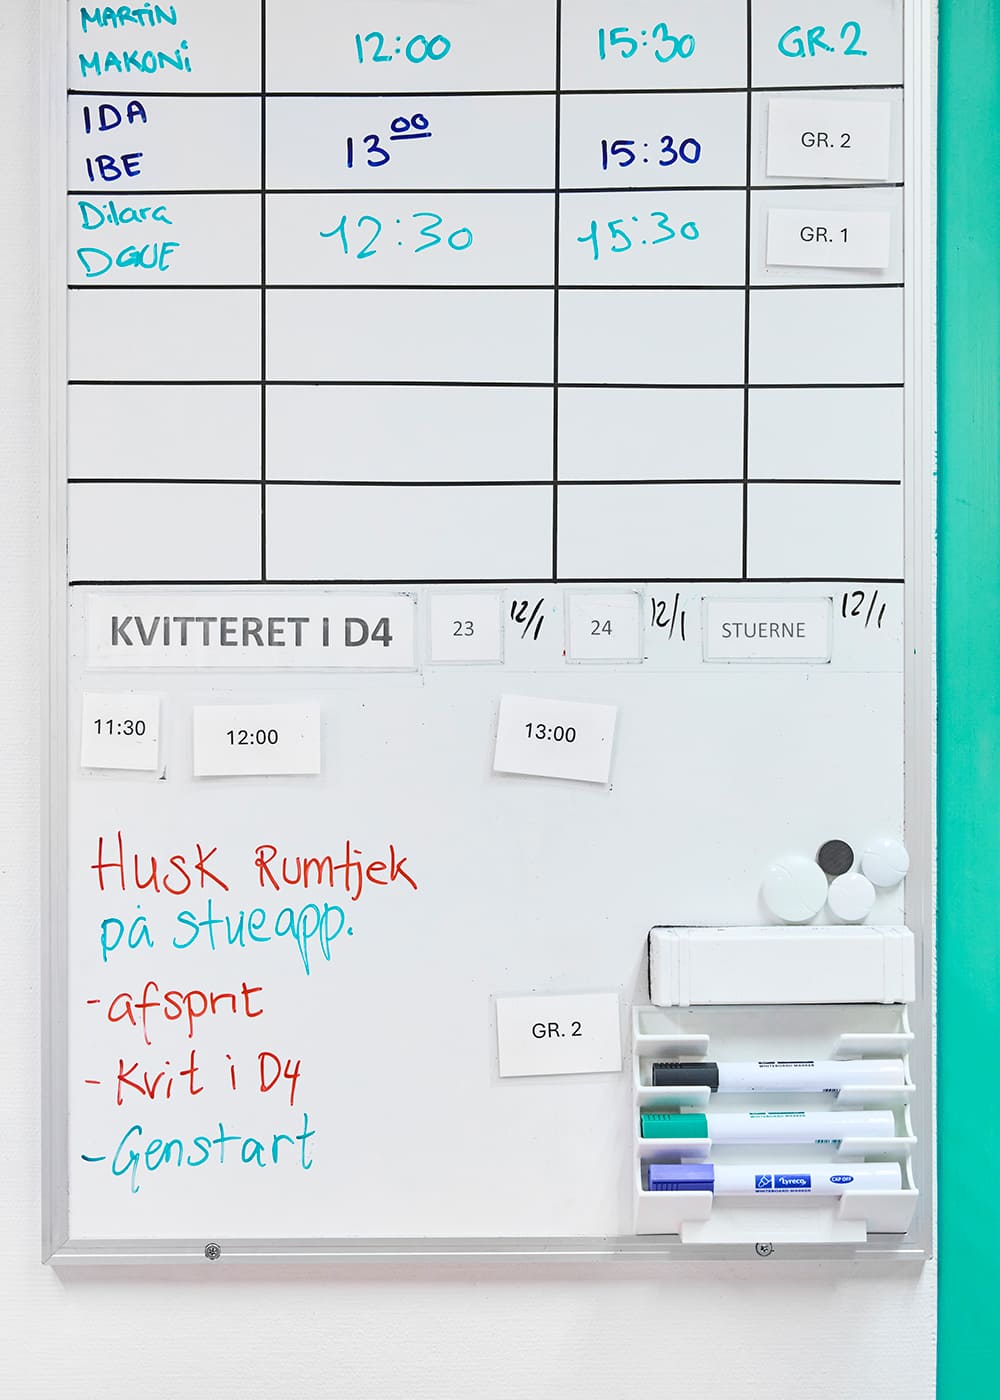 MARTIN
MAKONI
12:00
15:30
GR.2
IDA
IBE
13 00
15:30
GR. 2
Dilara
12:30
15:30
GR. 1
KVITTERET I D4
23
12/1
24
12/1
STUERNE
12/1
11:30
12:00
13:00
Husk Rumtjek
på stueapp.
-afsprit
- Kvit i D4
- Genstart
GR. 2
WHITEBOARD MARKER
Lyreco
CAP OFF
WHITEBOARD MARKER